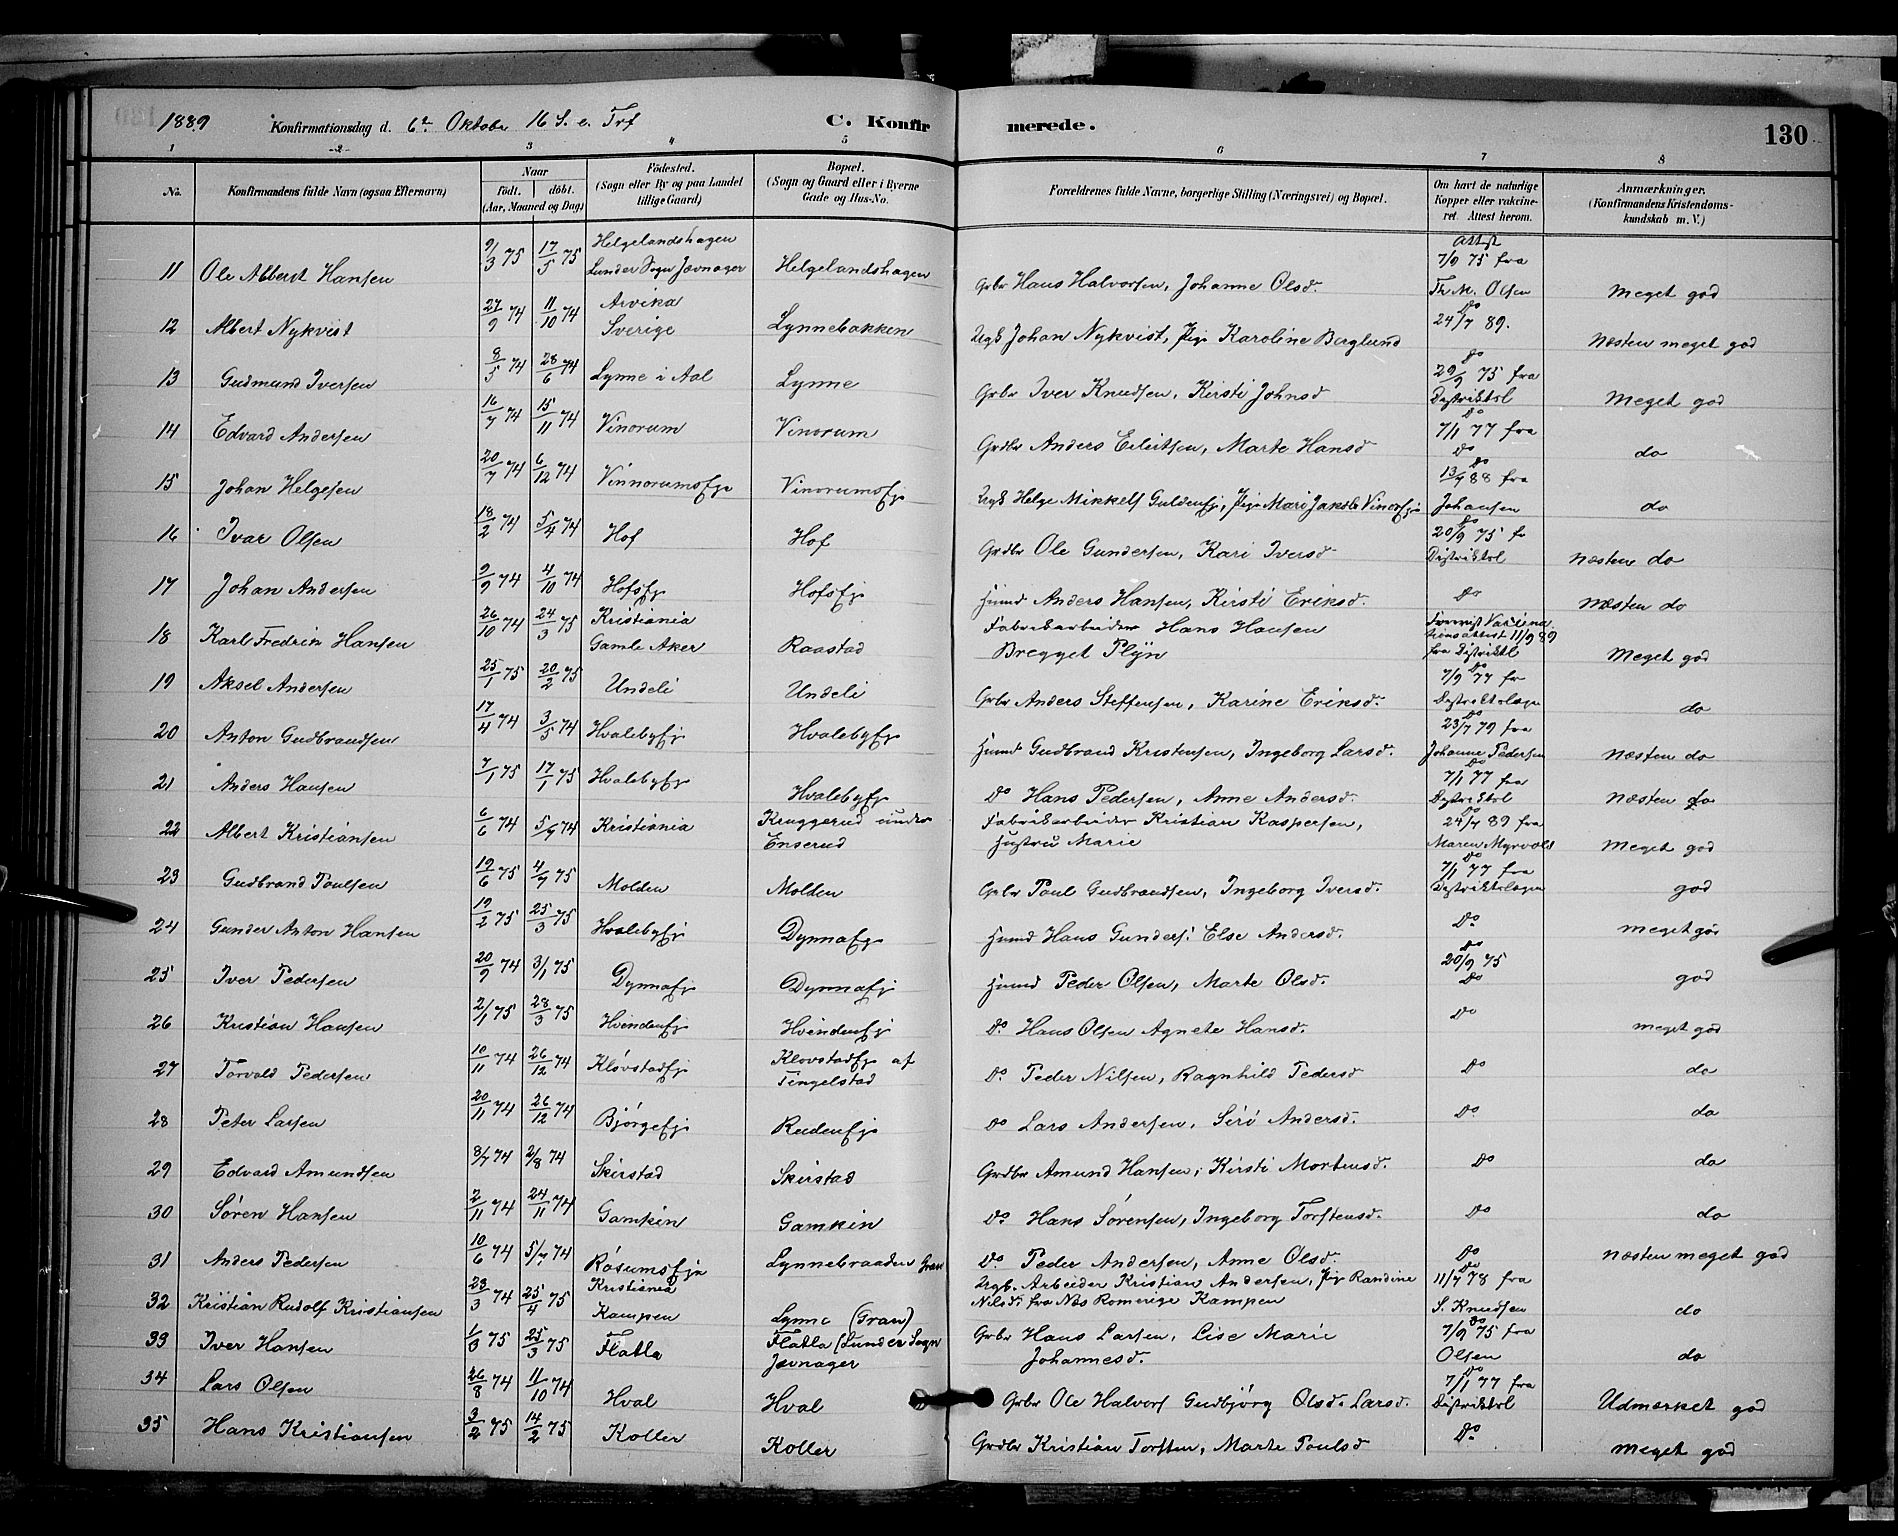 1889 Konfirmationsdag d. 6te Oktober 16 S. e. Trf C. Konfirmerede. 130
1 2 3 4 5 6 7 8
No. Konfirmandens fulde Navn (ogsaa Efternavn) Naar födt. döbt. (Aar, Maaned og Dag) Födested. (Sogn eller By og paa Landet tillige Gaard) Bopæl. (Sogn og Gaard eller i Byerne Gade og Hus-No. Forældrenes fulde Navne, borgerlige Stilling (Næringsvei) og Bopæl. Om havt de naturlige Kopper eller vakcineret. Attest herom. Anmærkninger. (Konfirmandens Kristendomskundskab m. V.)
11 Ole Albert Hansen 9/3 75 17/5 75 Helgelandshagen Lunder Sogn Jevnager Helgelandshagen Grbr Hans Halvorsen, Johanne Olsd. Attest 7/9 75 fra Th. M. Olsen Meget god
12 Albert Nykvist 27/9 74 11/10 74 Arvika Sverige Lynnebakken Ugk Johan Nykvist, Pige Karoline Berglund Do 24/7 89. Næsten meget god
13 Gudmund Iversen 8/5 74 28/6 74 Lynne i Aal Lynne Grbr Iver Knudsen, Kirsti Johnsd Do 29/9 75 fra Distriktsl Meget god
14 Edvard Andersen 16/7 74 15/11 74 Vinorum Vinorum Grdbr Anders Eileitsen, Marte Hansd Do 7/1 77 fra Do do
15 Johan Helgesen 20/7 74 6/12 74 Vinnorumsejr Vinorumsejr Ugk Helge Mikkels Guldenejr, Pige Mari Jakobs Vinorsejr Do 13/7 88 fra Johansen do
16 Ivar Olsen 18/2 74 5/4 74 Hof Hof Grdbr Ole Gundersen, Kari Iversd Do 20/9 75 f Distriktsl Næsten do
17 Johan Andersen 2/9 74 4/10 74 Hofsejr Hofsejr Husmd Anders Hansen, Kirsti Eriksd. Do Næsten do
18 Karl Fredrik Hansen 26/10 74 24/3 75 Kristiania Gamle Aker Raastad Fabrikarbeider Hans Hansen Bregget Plÿn Foreviist Vaccinationsattest 11/9 89 fra Distriktsl Meget god
19 Aksel Andersen 25/1 75 20/2 75 Undeli Undeli Grbr Anders Steffensen, Karine Eriksd. Do 7/9 77 fr Distriktslægen do
20 Anton Gudbrandsen 17/4 74 3/5 74 Hvalebyejr Hvalebyejr Husmd Gudbrand Kristensen, Ingeborg Larsd. Do 23/7 79 fra Johanne Pedersen Næsten do
21 Anders Hansen 7/1 75 17/1 75 Hvalebyejr Hvalebyejr Do Hans Pedersen, Anne Andersd. Do 7/1 77 fra Distriktsl Næsten do
22 Albert Kristiansen 6/6 74 5/9 74 Kristiania Kruggerud under Enserud Fabrikarbeider Kristian Kaspersen, Hustru Marie Do 24/7 89 fra Maren Myrvold Meget god
23 Gudbrand Poulsen 19/6 75 4/7 75 Molden Molden Grbr Poul Gudbrandsen, Ingeborg Iversd. Do 7/1 77 fra Distriktslægen god
24 Gunder Anton Hansen 19/2 75 25/3 75 Hvalebyejr Dynnaejr Husmd Hans Gunders: Else Andersd. Do. meget god
25 Iver Pedersen 20/9 74 3/1 75 Dynnaejr Dynnaejr Husmd Peder Olsen, Marte Olsd. Do 20/9 75 Do god
26 Kristian Hansen 2/1 75 28/3 75 Hvindenejr Hvindenejr Do. Hans Olsen Agnete Hansd. Do meget god
27 Torvald Pedersen 10/11 74 26/12 74 Klövstadejr Klovstadejr af Tingelstad Do. Peder Nilsen, Ragnhild Pedersd Do do
28 Peter Larsen 20/11 74 26/12 74 Bjørgeejr Rudenejr Do Lars Andersen, Siri Andersd. Do do
29 Edvard Amundsen 8/7 74 2/8 74 Skirstad Skirstad Grdbr Amund Hansen, Kirsti Mortensd. Do do
30 Sören Hansen 2/11 74 24/11 74 Gamkin Gamkin Do. Hans Sörensen, Ingeborg Torstensd. Do do
31 Anders Pedersen 10/6 74 5/7 74 Røsumsejr Lynnebraaden Gran Do Peder Andersen, Anne Olsd. Do Næsten meget god
32 Kristian Rudolf Kristiansen 23/3 74 25/4 75 Kristiania Kampen Lynne (Gran) Ugk. Arbeider Kristian Andersen, Pige Randine Nilsd. fra Næs Romerige Kampen Do 11/7 78 fra S. Knudsen do
33 Iver Hansen 1/3 75 25/3 75 Flatla Flatla (Lunder Sogn Jevnager Grbr Hans Larsen, Lise Marie Johannesd. Do 7/9 75 fra Olsen do
34 Lars Olsen 26/8 74 11/10 74 Hval Hval Grbr Ole Halvors Gudbjörg Olsd. Larsd. Do 7/1 77 fra Distriktsl Udmærket god
35 Hans Kristiansen 3/2 75 14/2 75 Koller Koller Grdbr Kristian Torsten, Marte Poulsd Do meget god